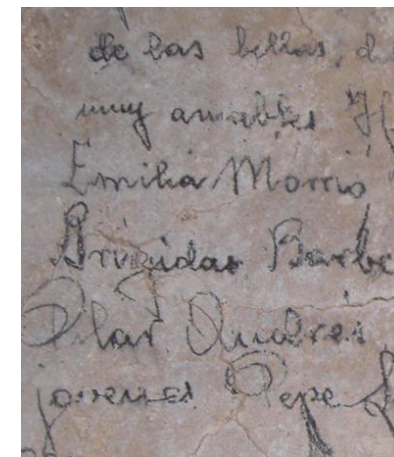 de las bellas, d
muy amables H
Emilia Morris
Brigidas Barbe
Pilar Andrés
jovenes Pepe